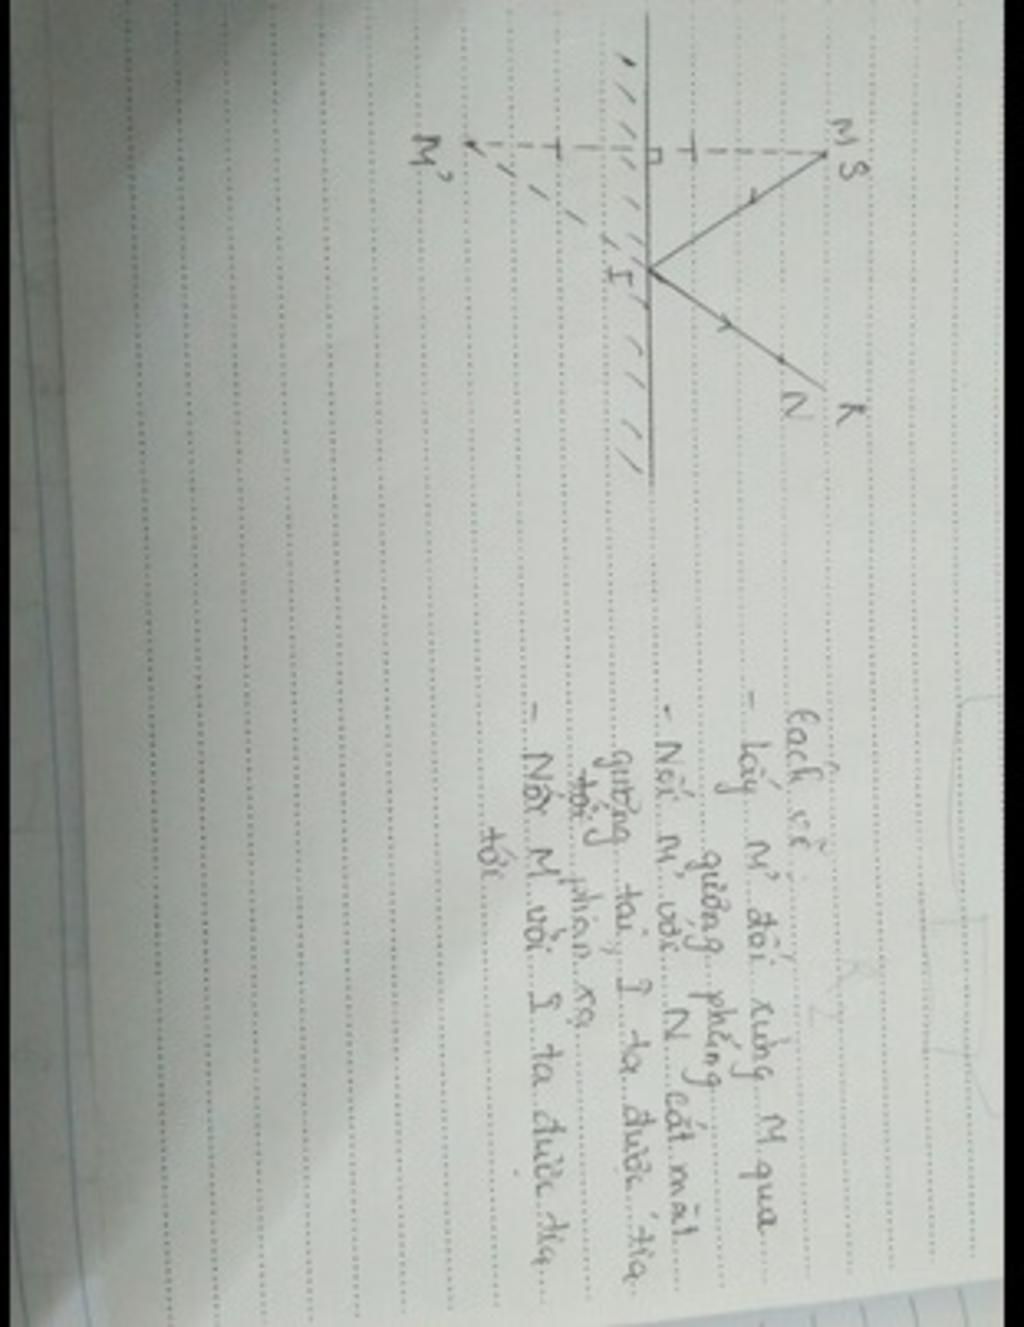 M S
K
N
I
M'
Cách vẽ:
- Lấy M' đối xứng M qua
gương phẳng
- Nối M' với N cắt mặt
gương tại I ta được tia
tới phản xạ
- Nối M với I ta được tia
tới